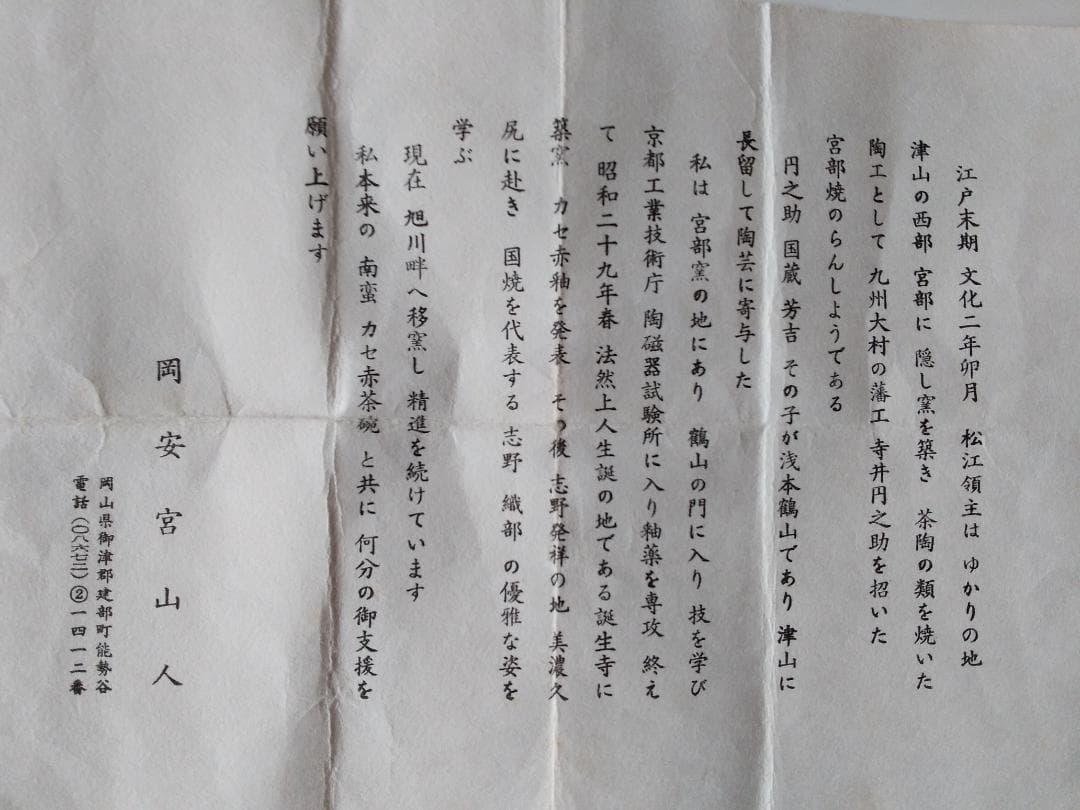 江戸末期 文化二年卯月 松江領主は ゆかりの地
津山の西部 宮部に 隠し窯を築き 茶陶の類を焼いた
陶工として 九州大村の藩工 寺井円之助を招いた
宮部焼のらんしようである
円之助 国蔵 芳吉 その子が浅本鶴山であり 津山に
長留して陶芸に寄与した
私は 宮部窯の地にあり 鶴山の門に入り 技を学び
京都工業技術庁 陶磁器試験所に入り釉薬を専攻 終え
て 昭和二十九年春 法然上人生誕の地である誕生寺に
築窯 カセ赤釉を発表 その後 志野発祥の地 美濃久
尻に赴き 国焼を代表する 志野 織部 の優雅な姿を
学ぶ
現在 旭川畔へ移窯し 精進を続けています
私本来の 南蛮 カセ赤茶碗 と共に 何分の御支援を
願い上げます
岡安宮山人
岡山県御津郡建部町能勢谷
電話(〇八六七二)②一四一二番